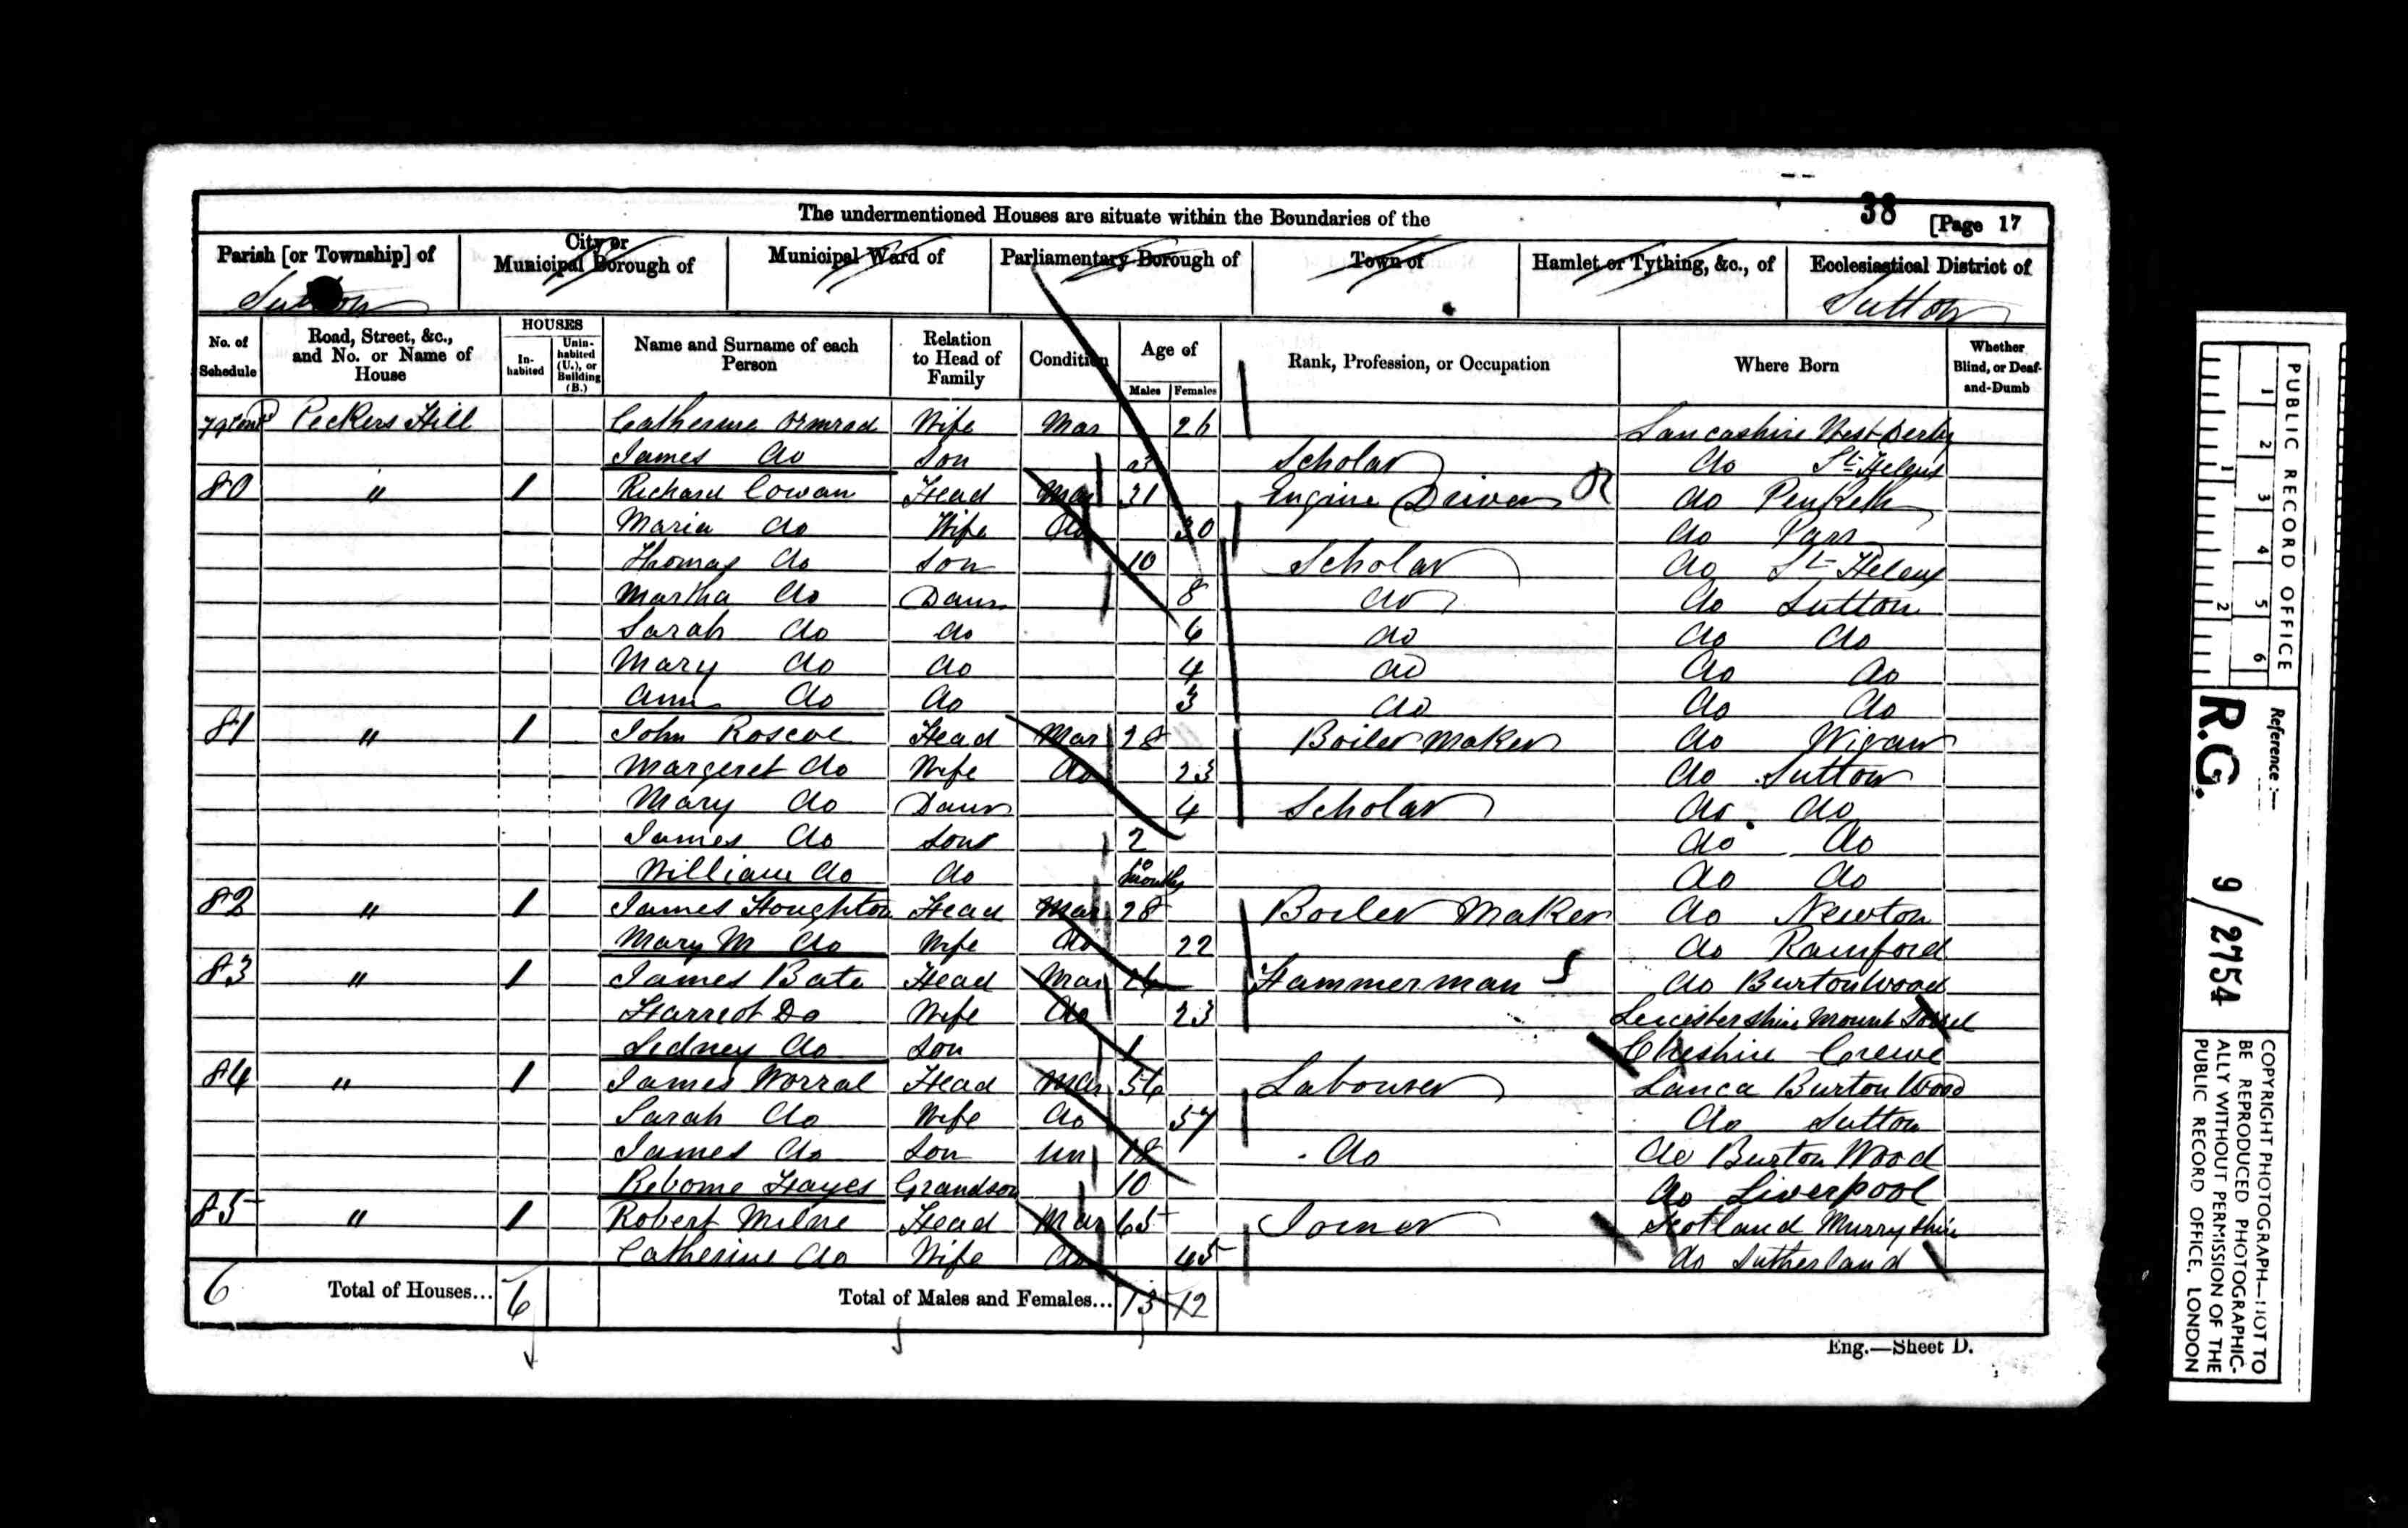 The undermentioned Houses are situate within the Boundaries of the
38
[Page 17
Parish [or Township] of
City or Municipal Borough of
Municipal Ward of
Parliamentary Borough of
Town of
Hamlet or Tything, &c., of
Ecclesiastical District of
Sutton
Sutton
No. of Schedule
Road, Street, &c., and No. or Name of House
HOUSES
In-habited
Unin-habited (U.), or Building (B.)
Name and Surname of each Person
Relation to Head of Family
Condition
Age of
Males
Females
Rank, Profession, or Occupation
Where Born
Whether Blind, or Deaf-and-Dumb
79 Peckers Hill Catherine Ormrod Wife Mar 26 Lancashire West Derby
James do Son 3 Scholar do St Helens
80 " 1 Richard Cowan Head Mar 31 Engine Driver R do Penketh
Maria do Wife do 30 do Parr
Thomas do Son 10 Scholar do St Helens
Martha do Daur 8 do do Sutton
Sarah do do 6 do do do
Mary do do 4 do do do
Ann do do 3 do do do
81 " 1 John Roscoe Head Mar 28 Boiler Maker do Wigan
Margeret do Wife do 23 do Sutton
Mary do Daur 4 Scholar do do
James do Son 2 do do
William do do 10 months do do
82 " 1 James Houghton Head Mar 28 Boiler Maker do Newton
Mary M do Wife do 22 do Rainford
83 " 1 James Bate Head Mar Hammerman S do Burtonwood
Harreot Do Wife do 23 Leicestershire Mount
Sidney do Son 1 Cheshire Crewe
84 " 1 James Worral Head Mar 56 Labourer Lanca Burton Wood
Sarah do Wife do 57 do Sutton
James do Son Un 18 do do Burton Wood
Hayes Grandson 10 do Liverpool
85 " 1 Robert Milne Head Mar 65 Joiner Scotland Murryshire
Catherine do Wife do 45 do Sutherland
6 Total of Houses... 6 Total of Males and Females... 13 12
Eng.—Sheet D.
PUBLIC RECORD OFFICE
1 2 3 4 5 6
1 2
Reference :—
R.G. 9/2754
COPYRIGHT PHOTOGRAPH—NOT TO
BE REPRODUCED PHOTOGRAPHIC-
ALLY WITHOUT PERMISSION OF THE
PUBLIC RECORD OFFICE, LONDON